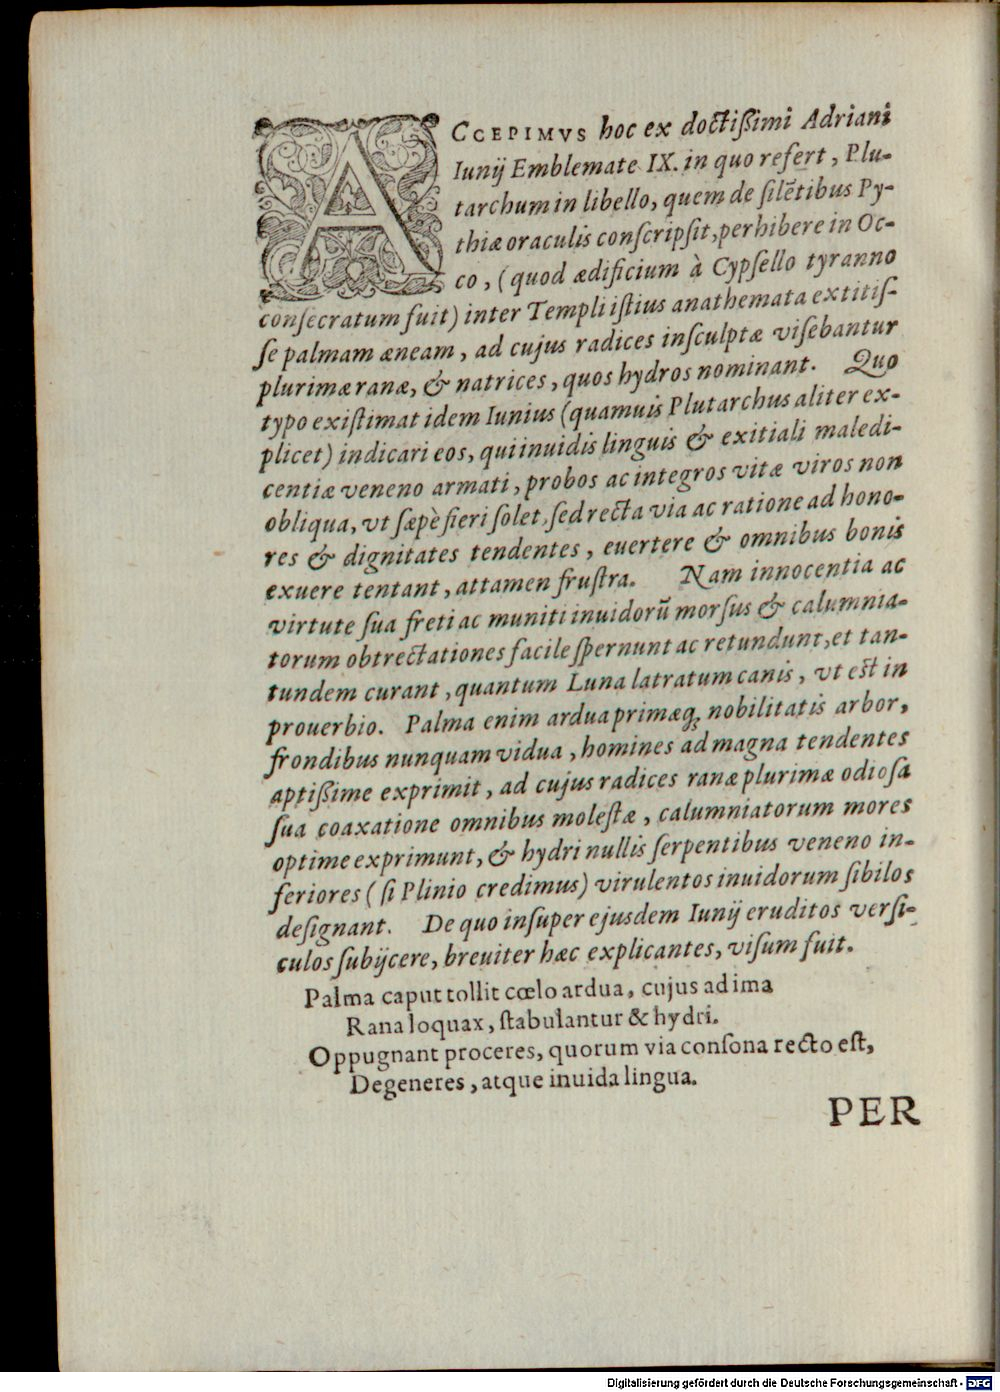 ACCEPIMVS hoc ex doctißimi Adriani
Iunij Emblemate IX. in quo refert, Plu-
tarchum in libello, quem de silẽtibus Py-
thiæ oraculis conscripsit, perhibere in Oc-
co, (quod ædificium à Cypsello tyranno
consecratum fuit) inter Templi istius anathemata extitis-
se palmam æneam, ad cujus radices insculptæ visebantur
plurimæ ranæ, & natrices, quos hydros nominant. Quo
typo existimat idem Iunius (quamuis Plutarchus aliter ex-
plicet) indicari eos, qui inuidis linguis & exitiali maledi-
centiæ veneno armati, probos ac integros vitæ viros non
obliqua, vt sæpè fieri solet, sed recta via ac ratione ad hono-
res & dignitates tendentes, euertere & omnibus bonis
exuere tentant, attamen frustra. Nam innocentia ac
virtute sua freti ac muniti inuidorũ morsus & calumnia-
torum obtrectationes facile spernunt ac retundunt, et tan-
tundem curant, quantum Luna latratum canis, vt est in
prouerbio. Palma enim ardua primæq; nobilitatis arbor,
frondibus nunquam vidua, homines ad magna tendentes
aptißime exprimit, ad cujus radices ranæ plurimæ odiosa
sua coaxatione omnibus molestæ, calumniatorum mores
optime exprimunt, & hydri nullis serpentibus veneno in-
feriores (si Plinio credimus) virulentos inuidorum sibilos
designant. De quo insuper ejusdem Iunij eruditos versi-
culos subijcere, breuiter hæc explicantes, visum fuit.
Palma caput tollit cœlo ardua, cujus ad ima
Rana loquax, stabulantur & hydri.
Oppugnant proceres, quorum via consona recto est,
Degeneres, atque inuida lingua.
PER
Digitalisierung gefördert durch die Deutsche Forschungsgemeinschaft - DFG